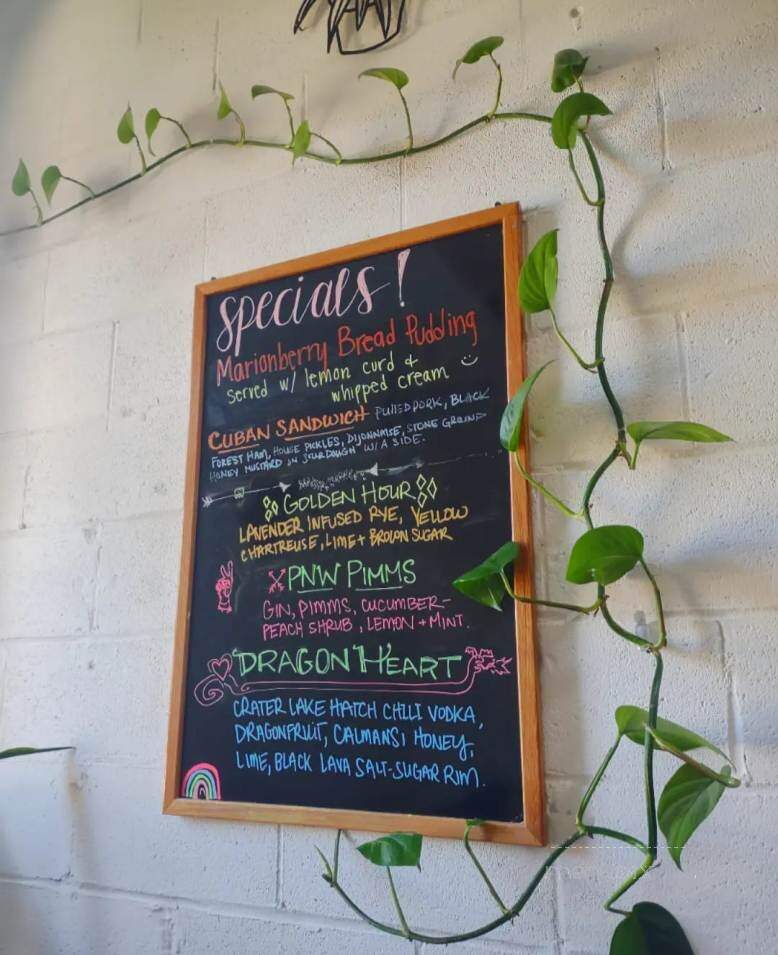 Specials!
Marionberry Bread Pudding
served w/ lemon curd &
whipped cream
CUBAN SANDWICH PULLED PORK, BLACK
FOREST HAM, HOUSE PICKLES, DIJONNAISE, STONE GROUND
HONEY MUSTARD ON SOURDOUGH W/ A SIDE.
GOLDEN HOUR
LAVENDER INFUSED RYE, YELLOW
CHARTREUSE, LIME + BROWN SUGAR
PNW PIMMS
GIN, PIMMS, CUCUMBER-
PEACH SHRUB, LEMON + MINT.
DRAGON HEART
CRATER LAKE HATCH CHILI VODKA,
DRAGONFRUIT, CALMANSI HONEY,
LIME, BLACK LAVA SALT-SUGAR RIM.